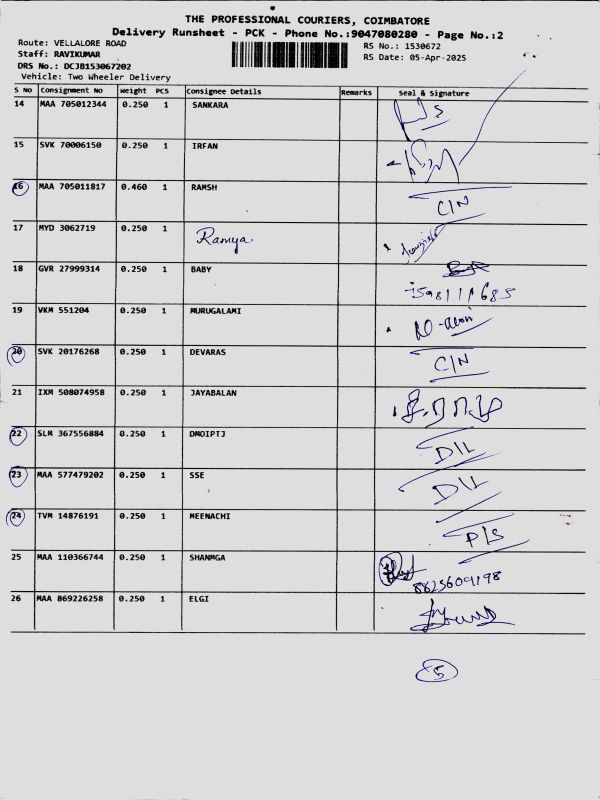 THE PROFESSIONAL COURIERS, COIMBATORE
Delivery Runsheet - PCK - Phone No.:9047080280 - Page No.:2
Route: VELLALORE ROAD
Staff: RAVIKUMAR
DRS No.: DCJB153067202
Vehicle: Two Wheeler Delivery
RS No.: 1530672
RS Date: 05-Apr-2025
S NO Consignment No Weight PCS Consignee Details Remarks Seal & Signature
14 MAA 705012344 0.250 1 SANKARA
15 SVK 70006150 0.250 1 IRFAN
16 MAA 705011817 0.460 1 RAMSH C/N
17 MYD 3062719 0.250 1 Ramya
18 GVR 27999314 0.250 1 BABY
19 VKM 551204 0.250 1 MURUGALAMI
20 SVK 20176268 0.250 1 DEVARAS C/N
21 IXM 508074958 0.250 1 JAYABALAN
22 SLM 367556884 0.250 1 DMOIPTJ D/L
23 MAA 577479202 0.250 1 SSE D/L
24 TVM 14876191 0.250 1 MEENACHI P/S
25 MAA 110366744 0.250 1 SHANMGA
8825609198
26 MAA 869226258 0.250 1 ELGI
5